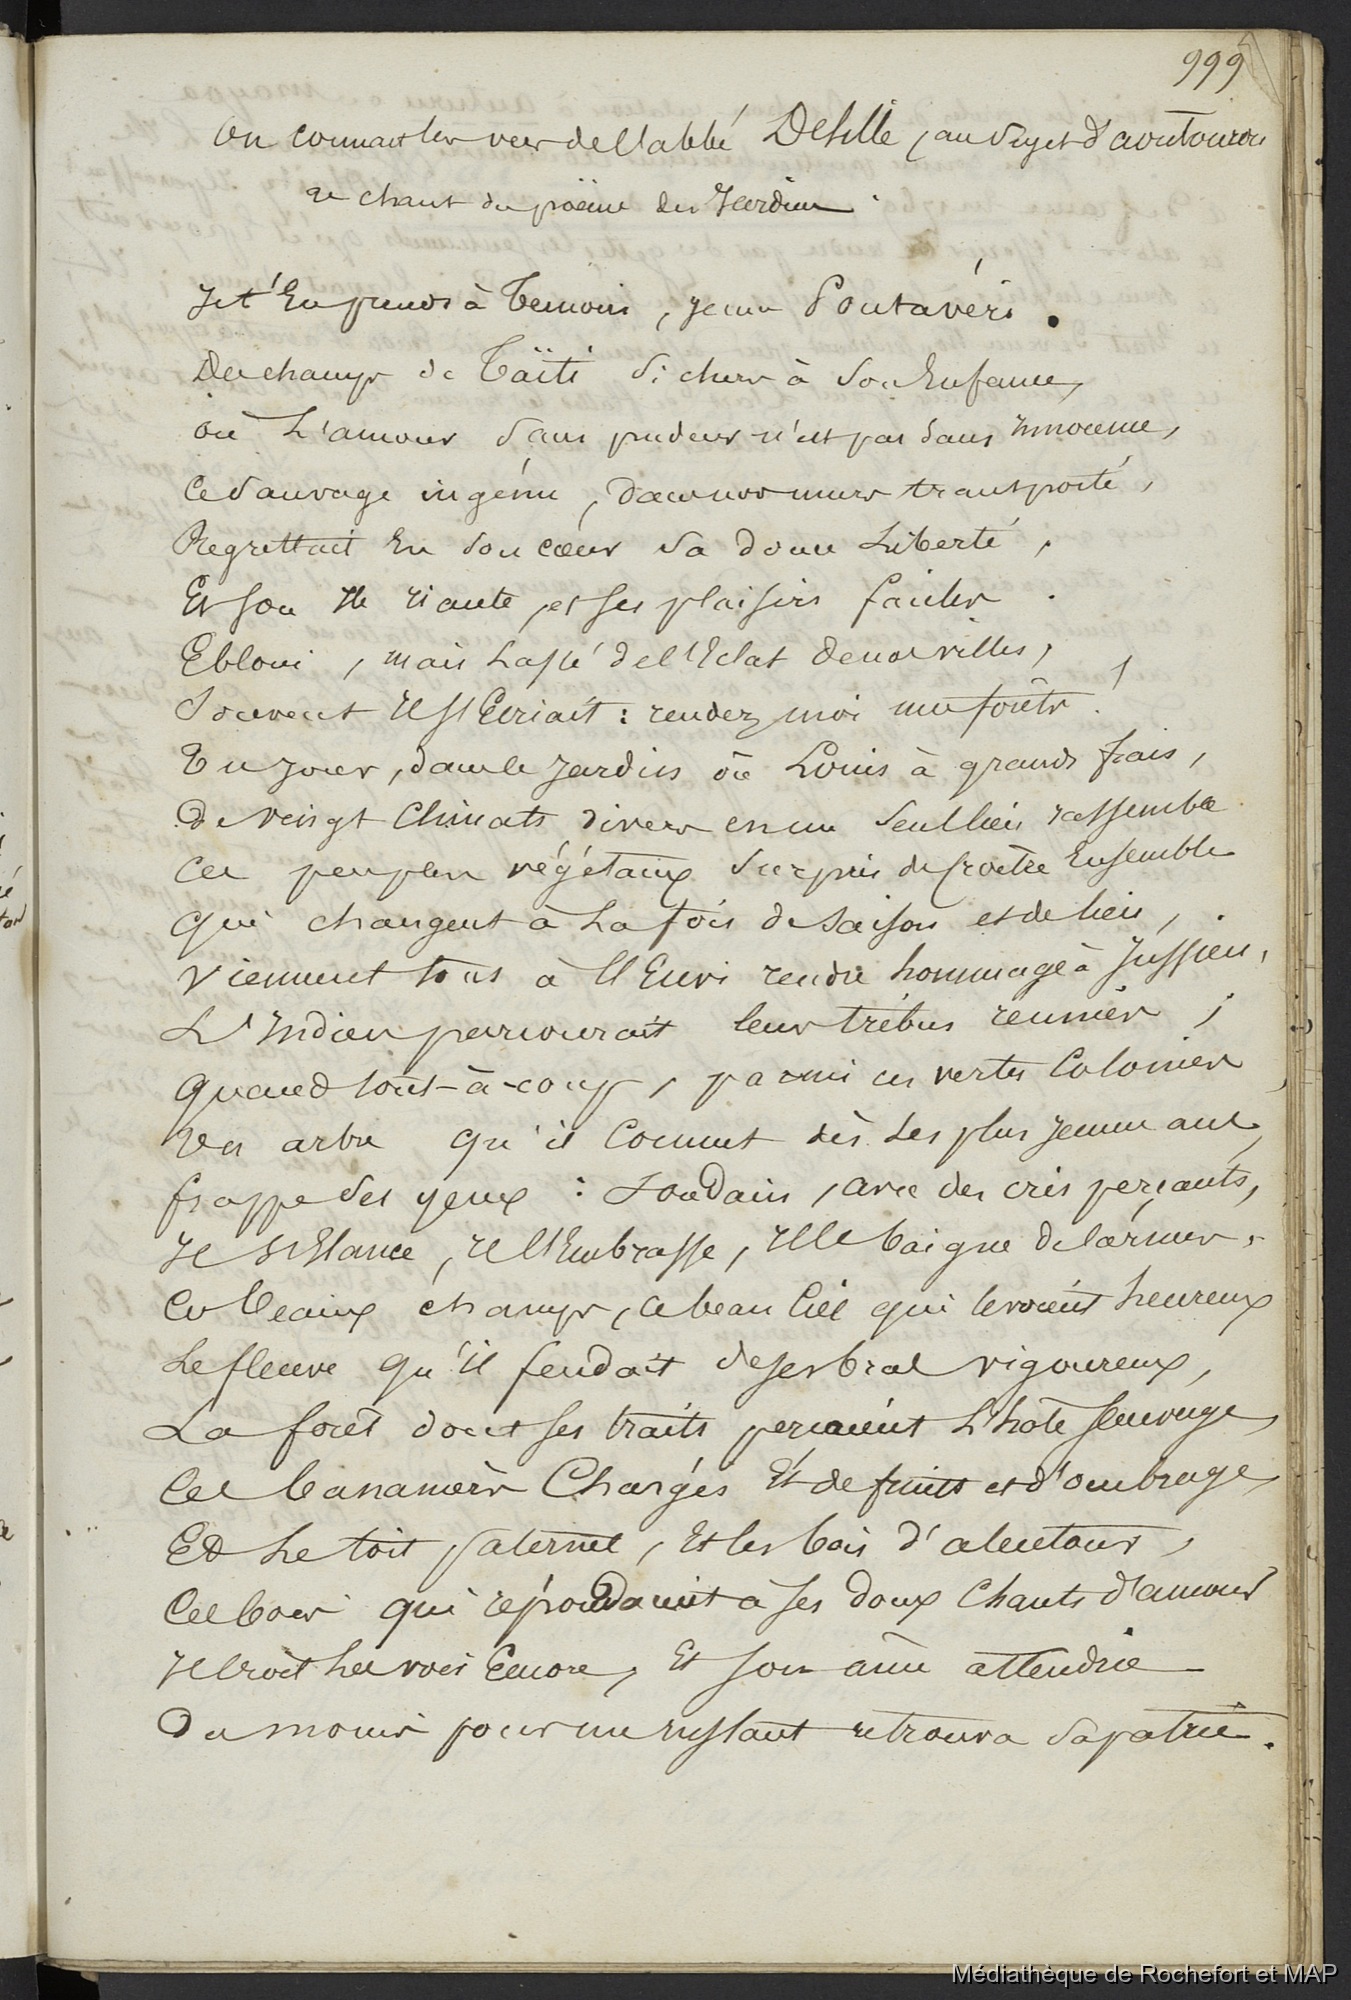 999
On connait les vers de l'abbé Delille, au Sujet d'aoutourou
2e chant du poëme des Jardins.
Je t'En prends à Temoin, jeune Poutavéri.
Des champs de Taïti Si chers à Son Enfance,
où L'amour Sans pudeur n'est pas Sans Innocence,
Ce Sauvage ingénu, Dans nos murs transporté,
Regrettait En Son cœur Sa douce Liberté,
Et son Ile riante, et ses plaisirs faciles.
Ebloui, mais Lassé de l'Eclat de nos villes,
Souvent Il s'Ecriait : rendez moi mes forêts !
Un jour, dans le Jardin où Louis à grands frais,
De vingt Climats divers en un Seul lieu rassemble
Ces peuples végétaux Surpris de croître Ensemble
Qui changent à La fois de Saison et de lieu,
Viennent tous à l'Envi rendre hommage à Jussieu,
L'Indien parcourait leurs tribus reunies ;
Quand tout-à-coup, parmi ces vertes Colonies
Un arbre qu'il Connut dès Ses plus jeunes ans,
frappe Ses yeux : Soudain, avec des cris perçants,
Il S'Elance, Il l'Embrasse, Il le baigne de larmes,
Ces beaux champs, ce beau Ciel qui le virent heureux
Le fleuve qu'il fendait de ses bras vigoureux,
La forêt dont ses traits percaient L'hôte Sauvage,
Ces bananiers Chargés Et de fruits et d'ombrage,
Et Le toit paternel, Et les bois d'alentour,
Ces bois qui répondaient à Ses doux Chants d'amour
Il croit Les voir Encore, Et son âme attendrie
Du moins pour un Instant retrouva Sa patrie.
Médiathèque de Rochefort et MAP